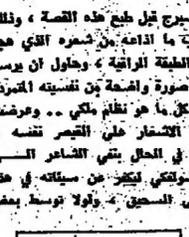 يرج قبل طبع هذه القصة ، وذلك
ت ما اذاعه من شعره الذي هج
الطبقة الراقية ، وحاول ان يرس
صورة واضحة من نفسيته المتمرد
كل ما هو نظام ملكي .. وعرضت
الاشعار على القيصر نفسه
في الحال بنفي الشاعر الــــ
سوفسكي ليكفر عن سيئاته في هذ
السحيق ، ولولا توسط بعض